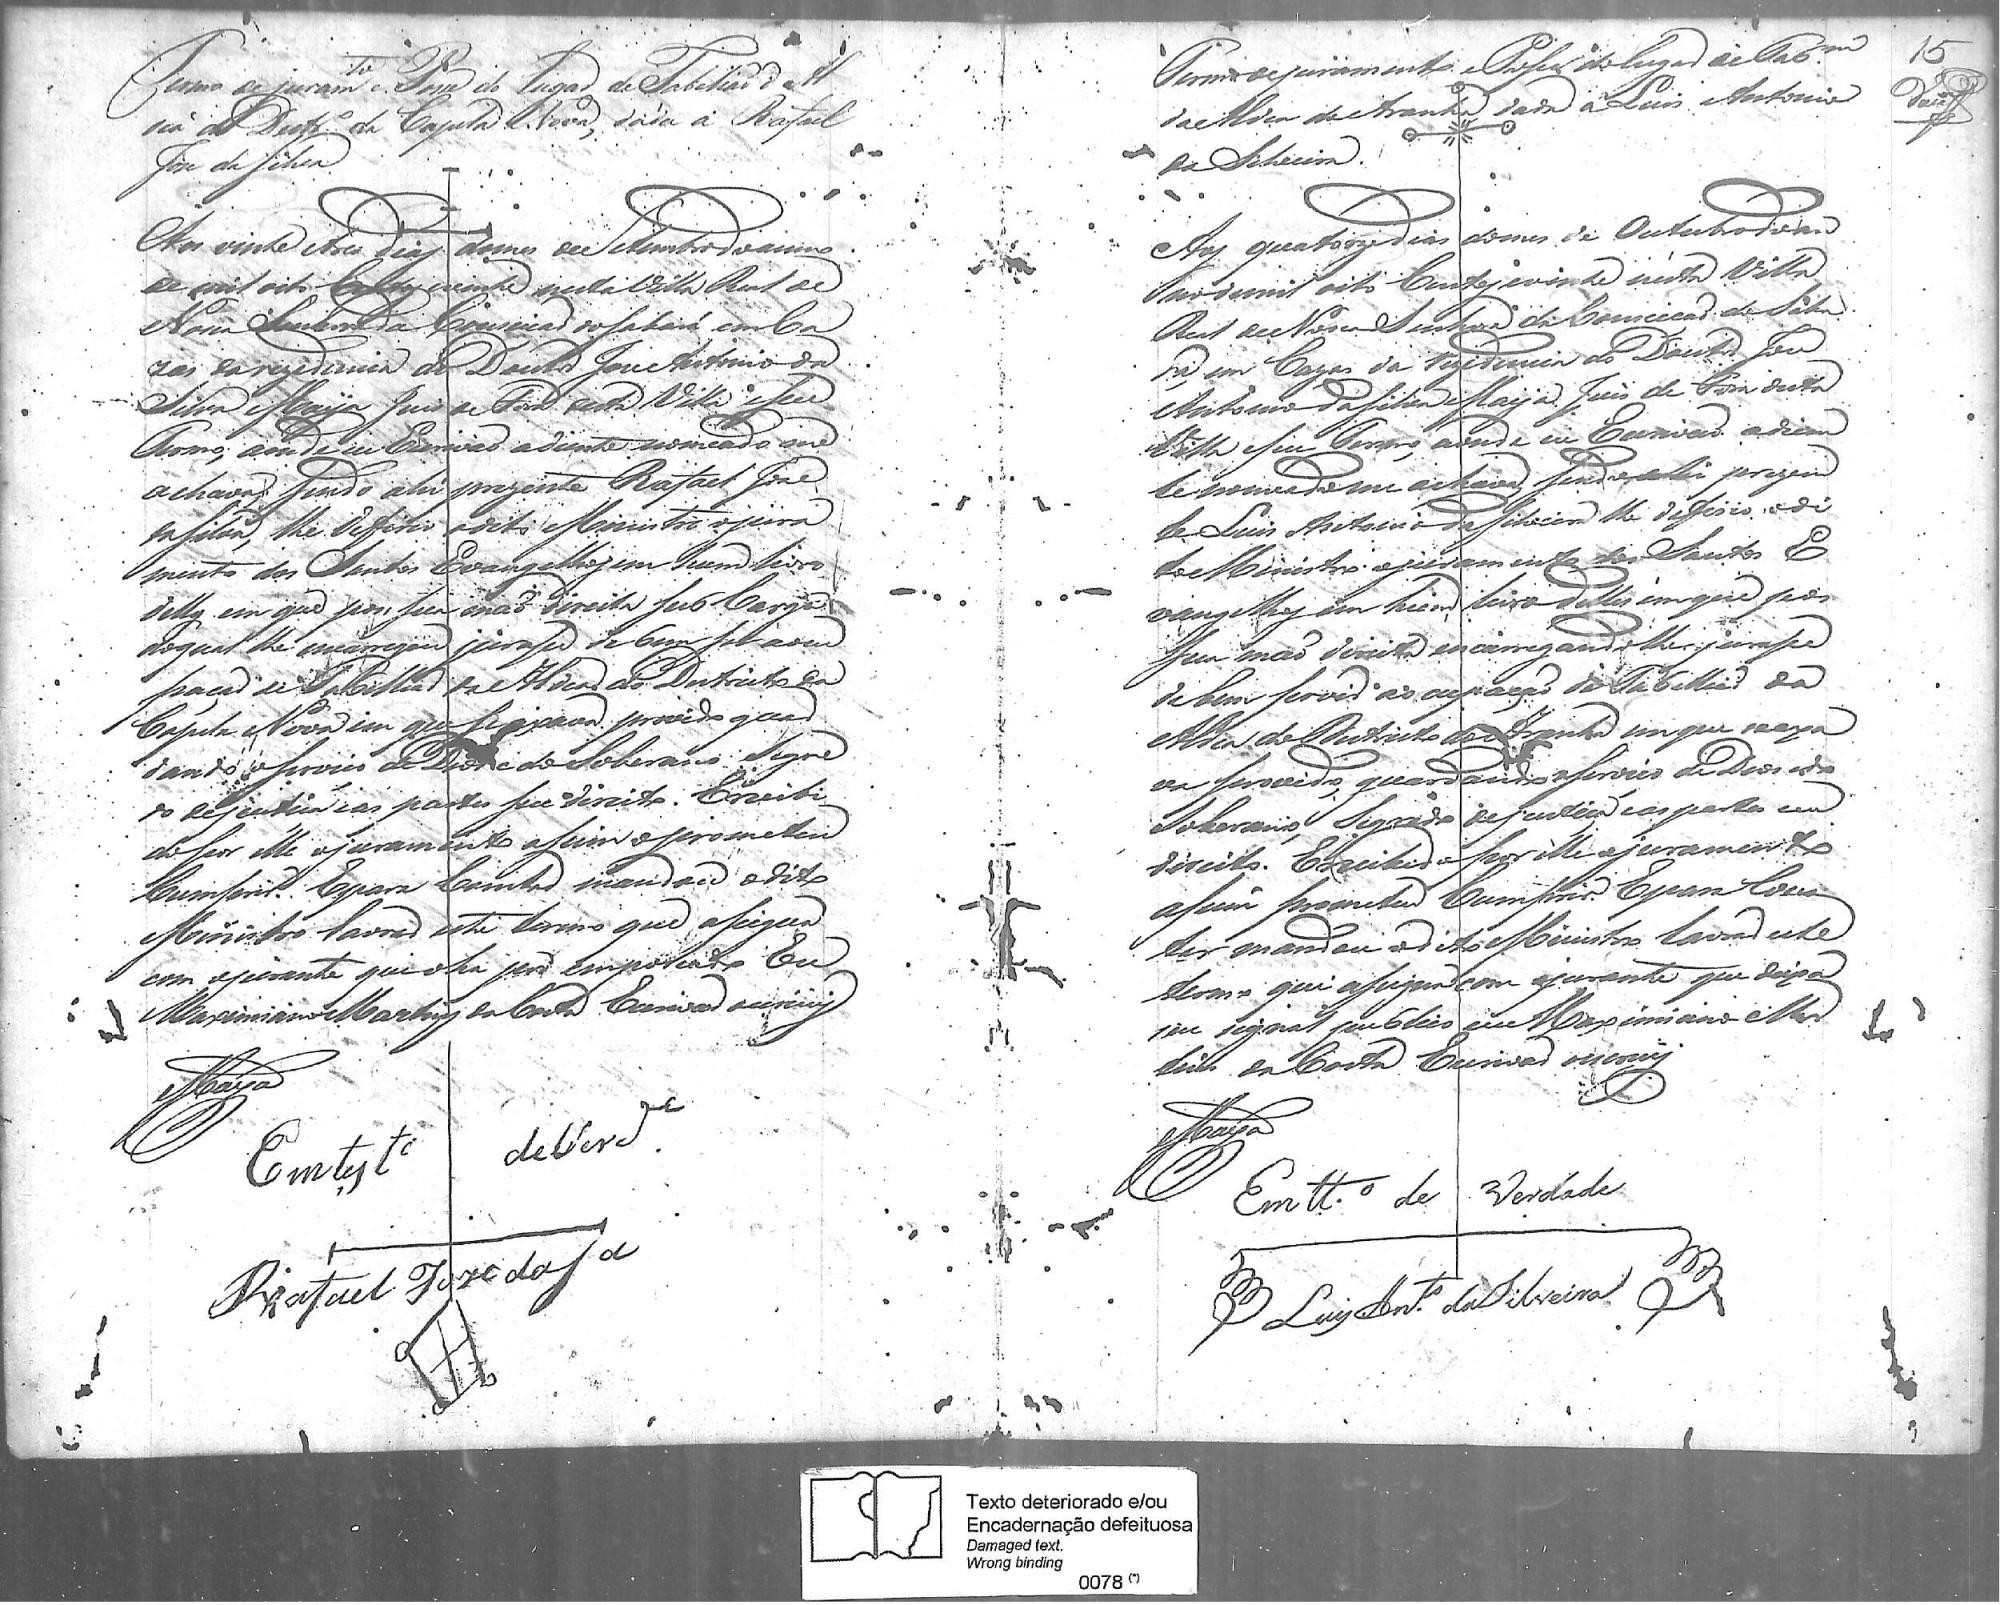 Termo de juram.to e Posse do Lugar de Tabeliaõ d Al
dea do Destr.o da Capella Nova, dada a Rafael
Joze da Silva
Aos vinte e tres dias do mes de Setembro do anno
de mil oito Centos e vinte nesta Villa Real de
Nossa Senhora da Conceicaõ do Sabará em Ca
zas da rezidencia do Doutor Joze Antonio da
Silva Maija Juis de Fora desta Villa e seu
Termo, aonde eu Escrivaõ adiante nomeado me
achava, sendo ahi prezente Rafael Joze
da Silva, lhe deferio o dito Ministro o jura
mento dos Santos Evangelhos em hum livro
delles em que pos sua maõ direita sob Cargo
do qual lhe encarregou jurase de bem
de Tabelliaõ da Aldea do Destricto da
Capella Nova em que se provido guar
dando o servico de Deos e do Soberano Segre
do de justica e as partes seu direito. E recebi
do por elle o juramento asim o prometeu
Cumprir. E para Constar mandou o dito
Ministro lavrar este termo que asignou
com o jurante
Eu
Maximiano Martins da Costa Escrivaõ o escrevy
Maija
Em test.o de Verd.e
Rafael Joze da S.a
15
Termo de juramento e Posse do Lugar de Tab.am
da Aldea de Aranha dada a Luis Antonio
da Silveira.
Aos quatorze dias do mes de Outubro do an
no de mil oito Centos e vinte nesta Villa
Real de Nossa Senhora da Conceicaõ do Saba
rá, em Cazas da rezidencia do Doutor Joze
Antonio da Silva Maija Juis de Fora desta
Villa e seu Termo, aonde eu Escrivaõ adian
te nomeado me achava, sendo ahi prezen
te Luis Antonio da Silveira lhe deferio o di
to Ministro o juramento dos Santos E
vangelhos em hum livro delles em que pos
sua maõ direita encarregandolhe jurase
de bem servir a ocupaçaõ de Tabelliaõ da
Aldea do Destricto da Aranha em que
provido, guardando o servico de Deos e do
Soberano, Segredo de justica e as partes seu
direito. E recebido por elle o juramento
asim prometeu Cumprir. E para Cons
tar mandou o dito Ministro lavrar este
termo que asignou com o jurante que
seu signal publico eu Maximiano Mar
tins da Costa Escrivaõ o escrevy
Maija
Em tt.o de Verdade
Luis Ant.o da Silveira
Texto deteriorado e/ou
Encadernação defeituosa
Damaged text.
Wrong binding
0078 (*)